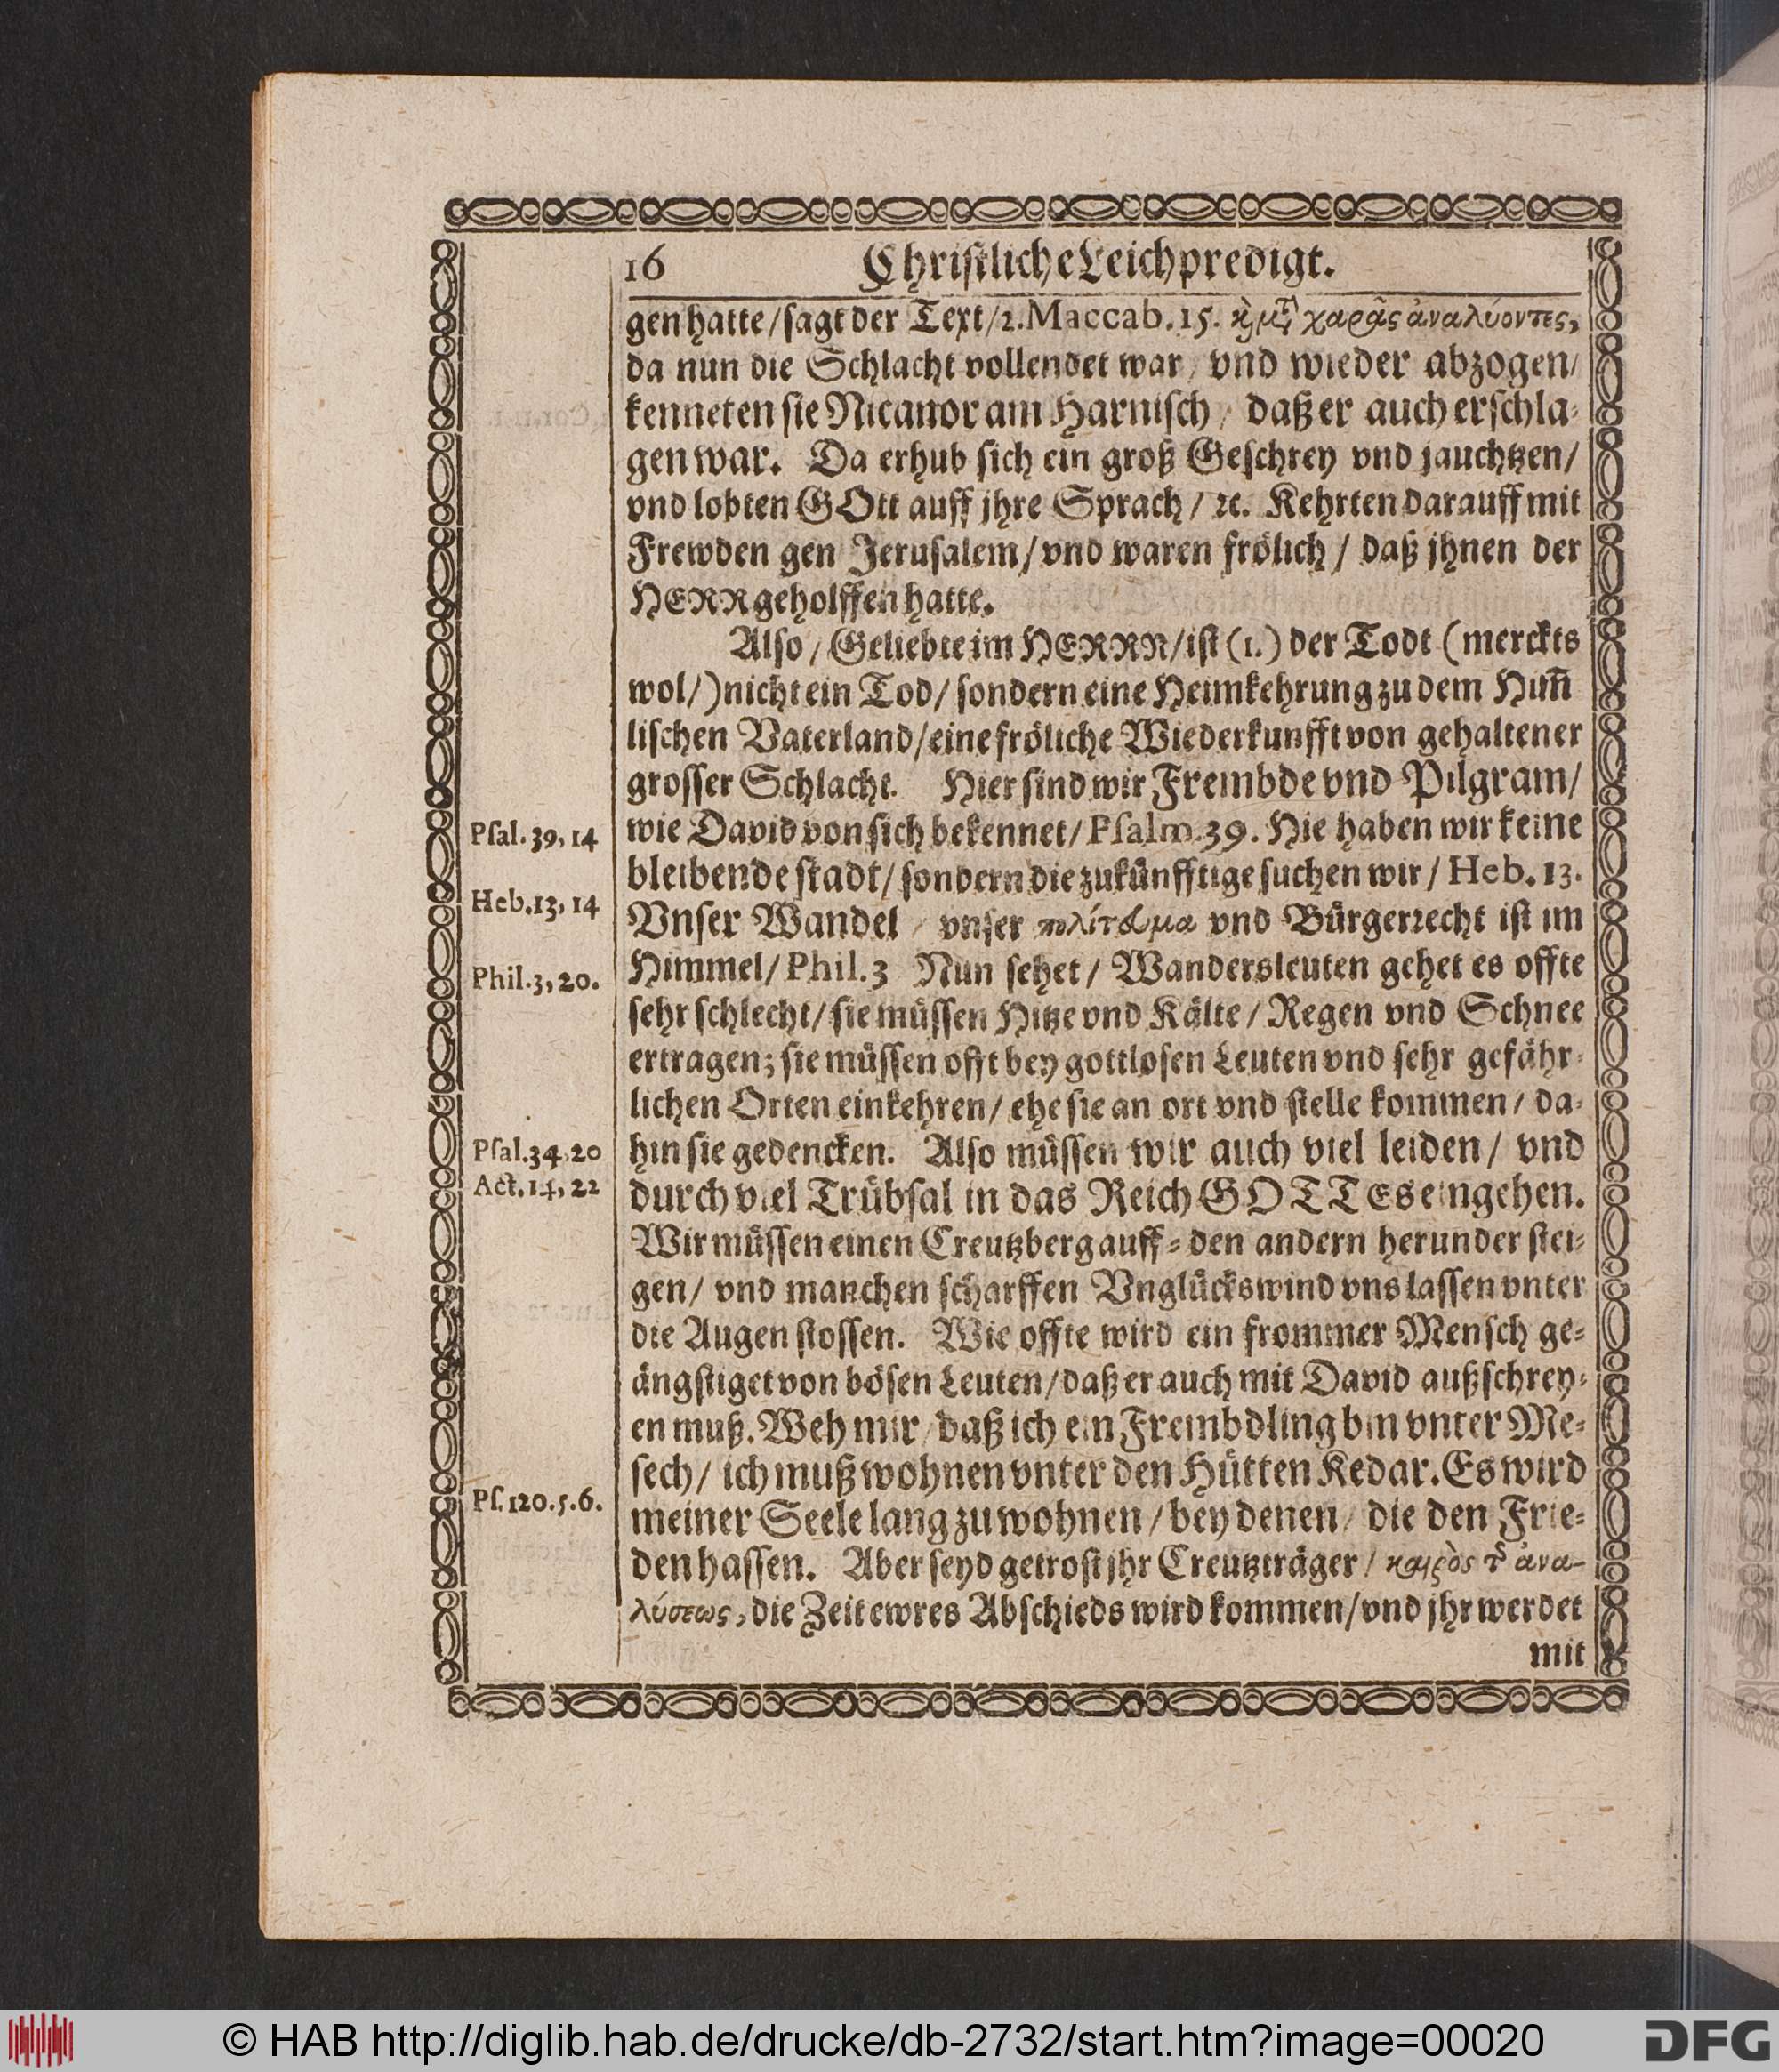 16 Christliche Leichpredigt.
gen hatte/ sagt der Text/ 2. Maccab. 15. ϗ μτ̃ χαρᾶς ἀναλύοντες,
da nun die Schlacht vollendet war/ vnd wieder abzogen/
kenneten sie Nicanor am Harnisch/ daß er auch erschla-
gen war. Da erhub sich ein groß Geschrey vnd jauchtzen/
vnd lobten GOtt auff jhre Sprach/ ꝛc. Kehrten darauff mit
Frewden gen Jerusalem/ vnd waren frölich/ daß jhnen der
HERR geholffen hatte.
Also/ Geliebte im HERRN/ ist (1.) der Todt (merckts
wol/) nicht ein Tod/ sondern eine Heimkehrung zu dem Him̃
lischen Vaterland/ eine fröliche Wiederkunfft von gehaltener
grosser Schlacht. Hier sind wir Frembde vnd Pilgram/
Psal. 39, 14
wie David von sich bekennet/ Psalm. 39. Hie haben wir keine
bleibende stadt/ sondern die zukünfftige suchen wir/ Heb. 13.
Heb. 13, 14
Vnser Wandel/ vnser πολίτευμα vnd Bürgerrecht ist im
Phil. 3, 20.
Himmel/ Phil. 3 Nun sehet/ Wandersleuten gehet es offte
sehr schlecht/ sie müssen Hitze vnd Kälte/ Regen vnd Schnee
ertragen; sie müssen offt bey gottlosen Leuten vnd sehr gefähr-
lichen Orten einkehren/ ehe sie an ort vnd stelle kommen/ da-
Psal. 34, 20
hin sie gedencken. Also müssen wir auch viel leiden/ vnd
Act. 14, 22
durch viel Trübsal in das Reich GOTTES eingehen.
Wir müssen einen Creutzberg auff- den andern herunder stei-
gen/ vnd manchen scharffen Vnglückswind vns lassen vnter
die Augen stossen. Wie offte wird ein frommer Mensch ge-
ängstiget von bösen Leuten/ daß er auch mit David außschrey-
en muß. Weh mir/ daß ich ein Frembdling bin vnter Me-
sech/ ich muß wohnen vnter den Hütten Kedar. Es wird
Ps. 120. 5. 6.
meiner Seele lang zu wohnen/ bey denen/ die den Frie-
den hassen. Aber seyd getrost jhr Creutzträger/ καιρὸς τ̃ ἀνα-
λύσεως, die Zeit ewres Abschieds wird kommen/ vnd jhr werdet
mit
© HAB http://diglib.hab.de/drucke/db-2732/start.htm?image=00020
DFG